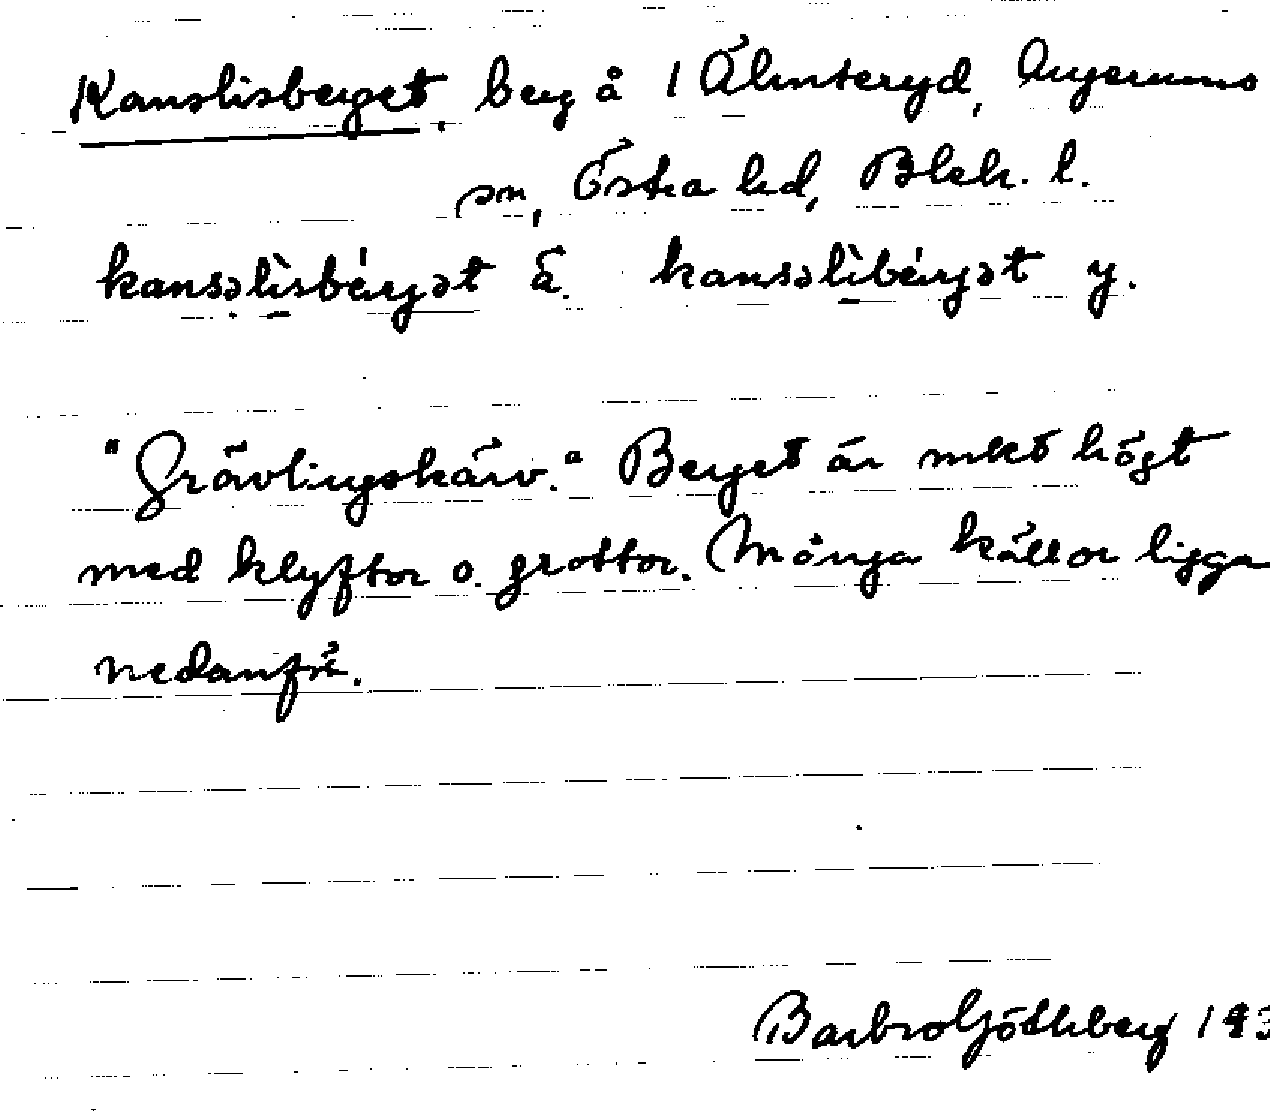 Kanslisberget, berg å 1 Älmteryd, Augerums
sn, Östra hd, Blek. l.
kansəlìsbérjət ä. kansəlìbérjət y.
"Grävlingskärv." Berget är mkt högt
med klyftor o. grottor. Många källor ligga
nedanför.
Barbro Göthberg 193